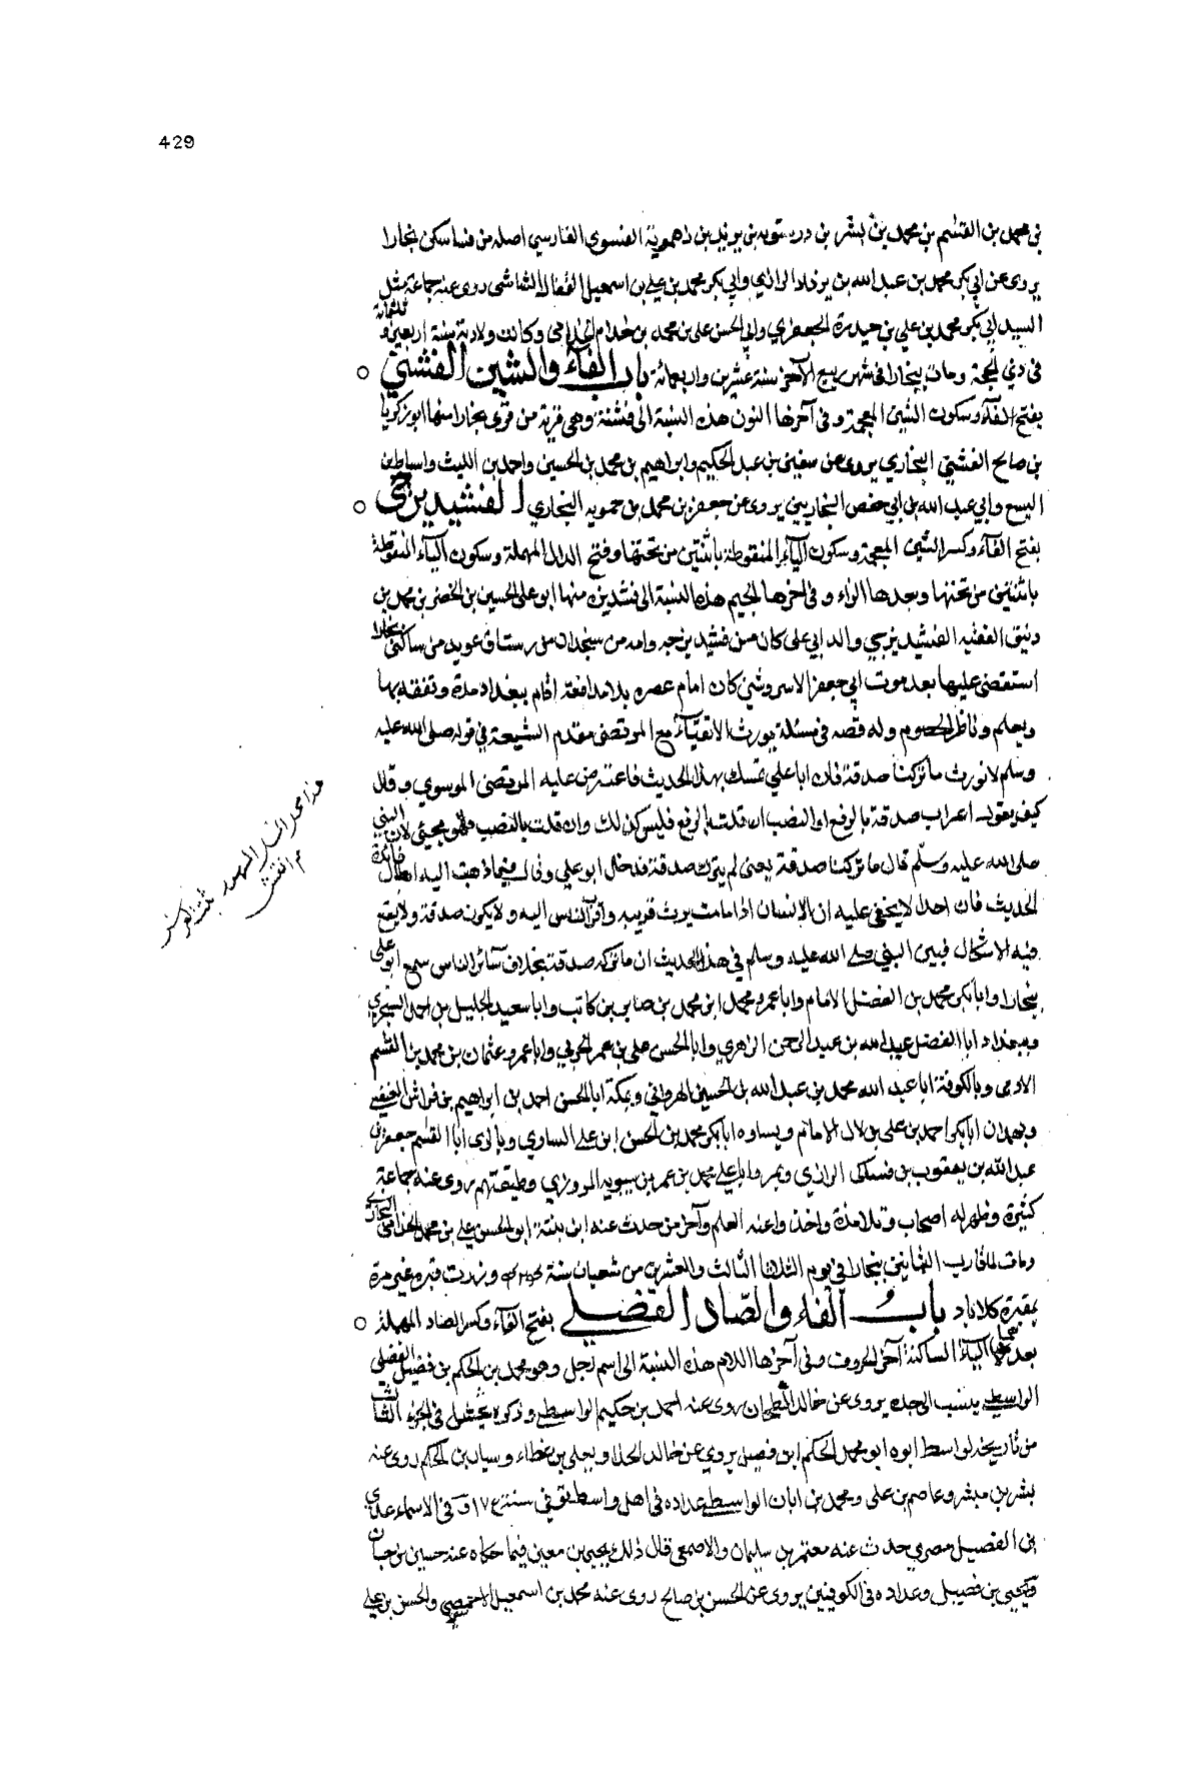 429
بن محمد بن القسم بن محمد بن بشر بن درستويه بن يزيد بن الفسوي الفارسي اصله من فسا سكن بخارا
يروى عن ابي بكر محمد بن عبد الله بن يزداد الرازي وابي بكر محمد بن علي بن اسمعيل القفال الشاشى روى عنه جماعة مثل
السيد ابي بكر محمد بن علي بن حيدرة الجعفري وابي الحسن على بن محمد بن خذام الخذامى وكانت ولادته سنة اربعين و ثلثمائة
فى ذي الحجة ومات ببخارا فى شهر ربيع الآخر سنة عشرين واربعمائة باب الفاء والشين الفشنى
بفتح الفاء وسكون الشين المعجمة وفى آخرها النون هذه النسبة الى فشنة وهى قرية من قرى بخارا منها ابو زكريا
بن صالح الفشني البخاري يروى عن سفين بن عبد الحكيم وابراهيم بن محمد بن الحسين واحمد بن الليث واسباط بن
اليسع وابي عبد الله بن ابي حفص البخاريين يروى عن جعفر بن محمد بن حمويه البخاري الفشيديزجى
بفتح الفاء وكسر الشين المعجمة وسكون الياء المنقوطة باثنتين من تحتها وفتح الدال المهملة وسكون الياء المنقوطة
باثنتين من تحتها وبعدها الزاء وفى اخرها الجيم هذه النسبة الى منها ابو على الحسين بن الخضر بن محمد بن
الفقيه الفشيديزجي والد ابي على كان من وامه من من رستاق من ساكنى بخارا
استقضى عليها بعد موت ابي جعفر الاسروشني كان امام عصره بلا مدافعة اقام ببغداد مدة وتفقه بها
وتعلم وناظر الخصوم وله قصه فى مسئلة توريث الانبياء مع المرتضى مقدم الشيعة في قوله صلى الله عليه
وسلم لا نورث ما تركنا صدقة فان ابا علي تمسك بهذا الحديث فاعترض عليه المرتضى الموسوي وقال
كيف يقول اعراب صدقة بالرفع او النصب ان قلت بالرفع فليس كذلك وان قلت بالنصب فهو حجتي لان النبي
صلى الله عليه وسلم قال ما تركنا صدقة يعنى لم يترك صدقة فدخل ابو علي وقال فيما ذهبت اليه ابطال فائدة
الحديث فان احدا لا يخفى عليه ان الانسان اذا مات يرث قريبه واقرب الناس اليه ولا يكون صدقة ولا يقع
فيه الاشكال فبين النبي صلى الله عليه وسلم في هذا الحديث ان ما تركه صدقة بخلاف سائر الناس سمع ابو على
ببخارا وابا بكر محمد بن الفضل الامام وابا عمرو محمد ابن محمد بن صابر بن كاتب وابا سعيد الخليل بن احمد السجزي
وببغداد ابا الفضل عبيد الله بن عبد الرحمن الزهري وابا الحسن على بن عمر الحربي وابا عمرو عثمان بن محمد بن القسم
الادمى وبالكوفة ابا عبد الله محمد بن عبد الله بن الحسين الهرواني وبمكة ابا الحسن احمد بن ابراهيم بن فراس العبقسي
وبهمدان ابا بكر احمد بن على بن لال الامام وبساوه ابا بكر محمد بن الحسن ابن علي الساوي وبالرى ابا القسم جعفر بن
عبد الله بن يعقوب بن فناكى الرازي وبمرو ابا علي محمد بن عمر بن شبويه المروزي وطبقتهم روى عنه جماعة
كثيرة وظهر له اصحاب وتلامذة واخذوا عنه العلم وآخر من حدث عنه ابن بنته ابو الحسن علي بن محمد الخذامى البخاري
ومات لما قارب الثمانين ببخارا في يوم الثلثا الثالث والعشرين من شعبان سنة وزرت قبره غير مرة
بمقبرة كلاباد باب الفاء والصاد الفصيلي بفتح الفاء وكسر الصاد المهملة
بعدها الياء الساكنة آخر الحروف وفى آخرها اللام هذه النسبة الى اسم رجل وهو محمد بن الحكم بن فصيل الفصيلي
الواسطي ينسب الى جده يروى عن خالد الطحان روى عنه احمد بن حكيم الواسطي وذكره بحشل فى الجزء الثالث
من تاريخه لواسط ابوه ابو محمد الحكم ابن فصيل يروي عن خالد الحذاء ويعلى بن عطاء وسيار بن الحكم روى عنه
بشر بن مبشر وعاصم بن على ومحمد بن ابان الواسطي عداده فى اهل واسط توفي سنة وفى الاسماء عدي
بن الفصيل مصري حدث عنه معتمر بن سليمان والاصمعى قال ذلك يحيى بن معين فيما حكاه عنه حسين بن حبان
ويحيى بن فصيل وعداده فى الكوفيين يروى عن الحسن بن صالح روى عنه محمد بن اسمعيل الاحمسي والحسن بن علي